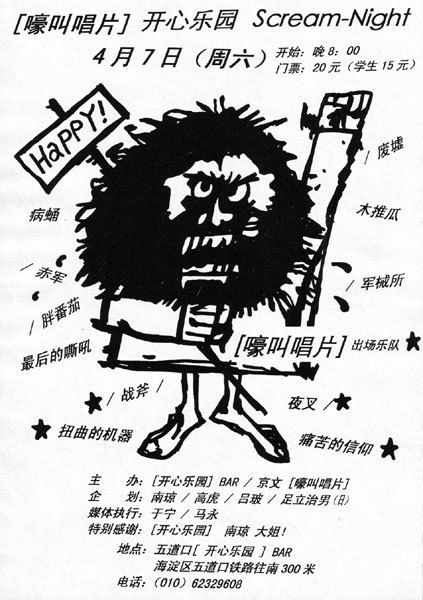 [嚎叫唱片] 开心乐园 Scream-Night
4月7日（周六）
开始: 晚8: 00
门票: 20元（学生15元）
HaPPY!
/ 废墟
病蛹
木推瓜
/ 赤军
/ 军械所
/ 胖番茄
最后的嘶吼
[嚎叫唱片] 出场乐队
/ 战斧 /
夜叉 /
扭曲的机器
痛苦的信仰
主 办: [开心乐园] BAR / 京文 [嚎叫唱片]
企 划: 南琼 / 高虎 / 吕玻 / 足立治男(日)
媒体执行: 于宁 / 马永
特别感谢: [开心乐园] 南琼 大姐!
地点: 五道口[ 开心乐园 ] BAR
海淀区五道口铁路往南300米
电话: (010) 62329608